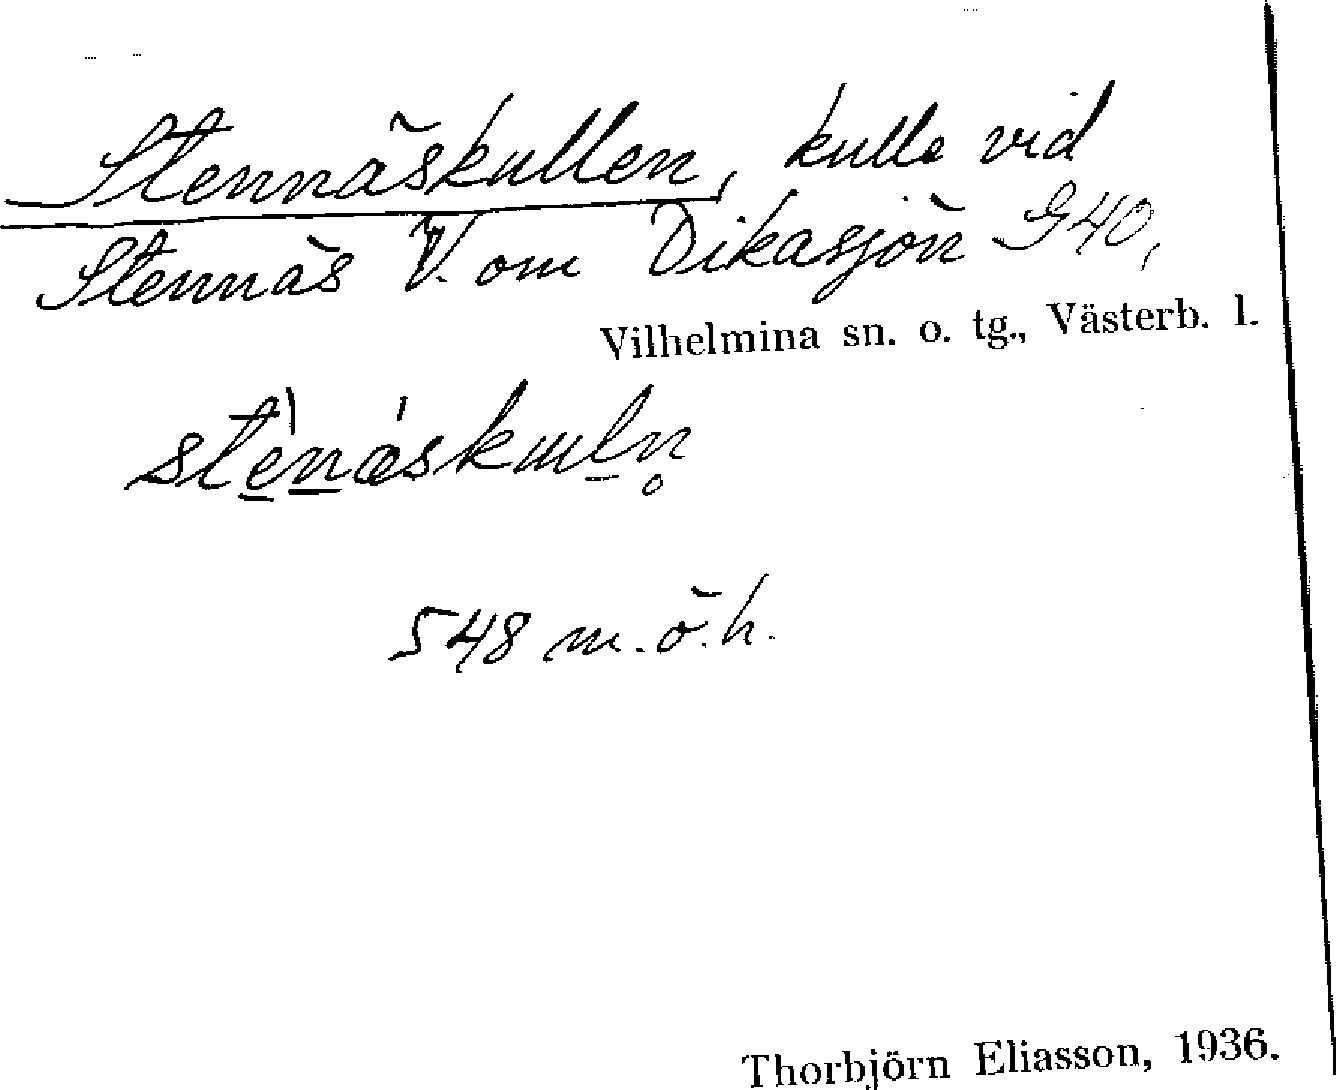 Stennäskullen, kulle vid
Stennäs V. om Dikasjön G40,
Vilhelmina sn. o. tg., Västerb. l.
548 m. ö. h.
Thorbjörn Eliasson, 1936.